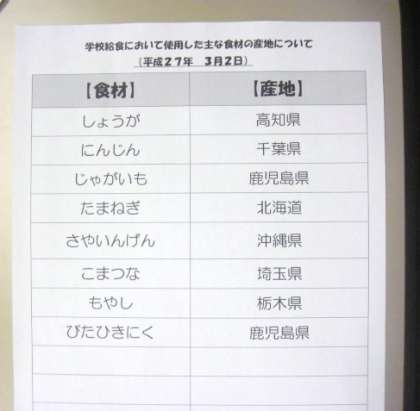 学校給食において使用した主な食材の産地について
（平成２７年　３月２日）
【食材】　【産地】
しょうが　高知県
にんじん　千葉県
じゃがいも　鹿児島県
たまねぎ　北海道
さやいんげん　沖縄県
こまつな　埼玉県
もやし　栃木県
ぶたひきにく　鹿児島県